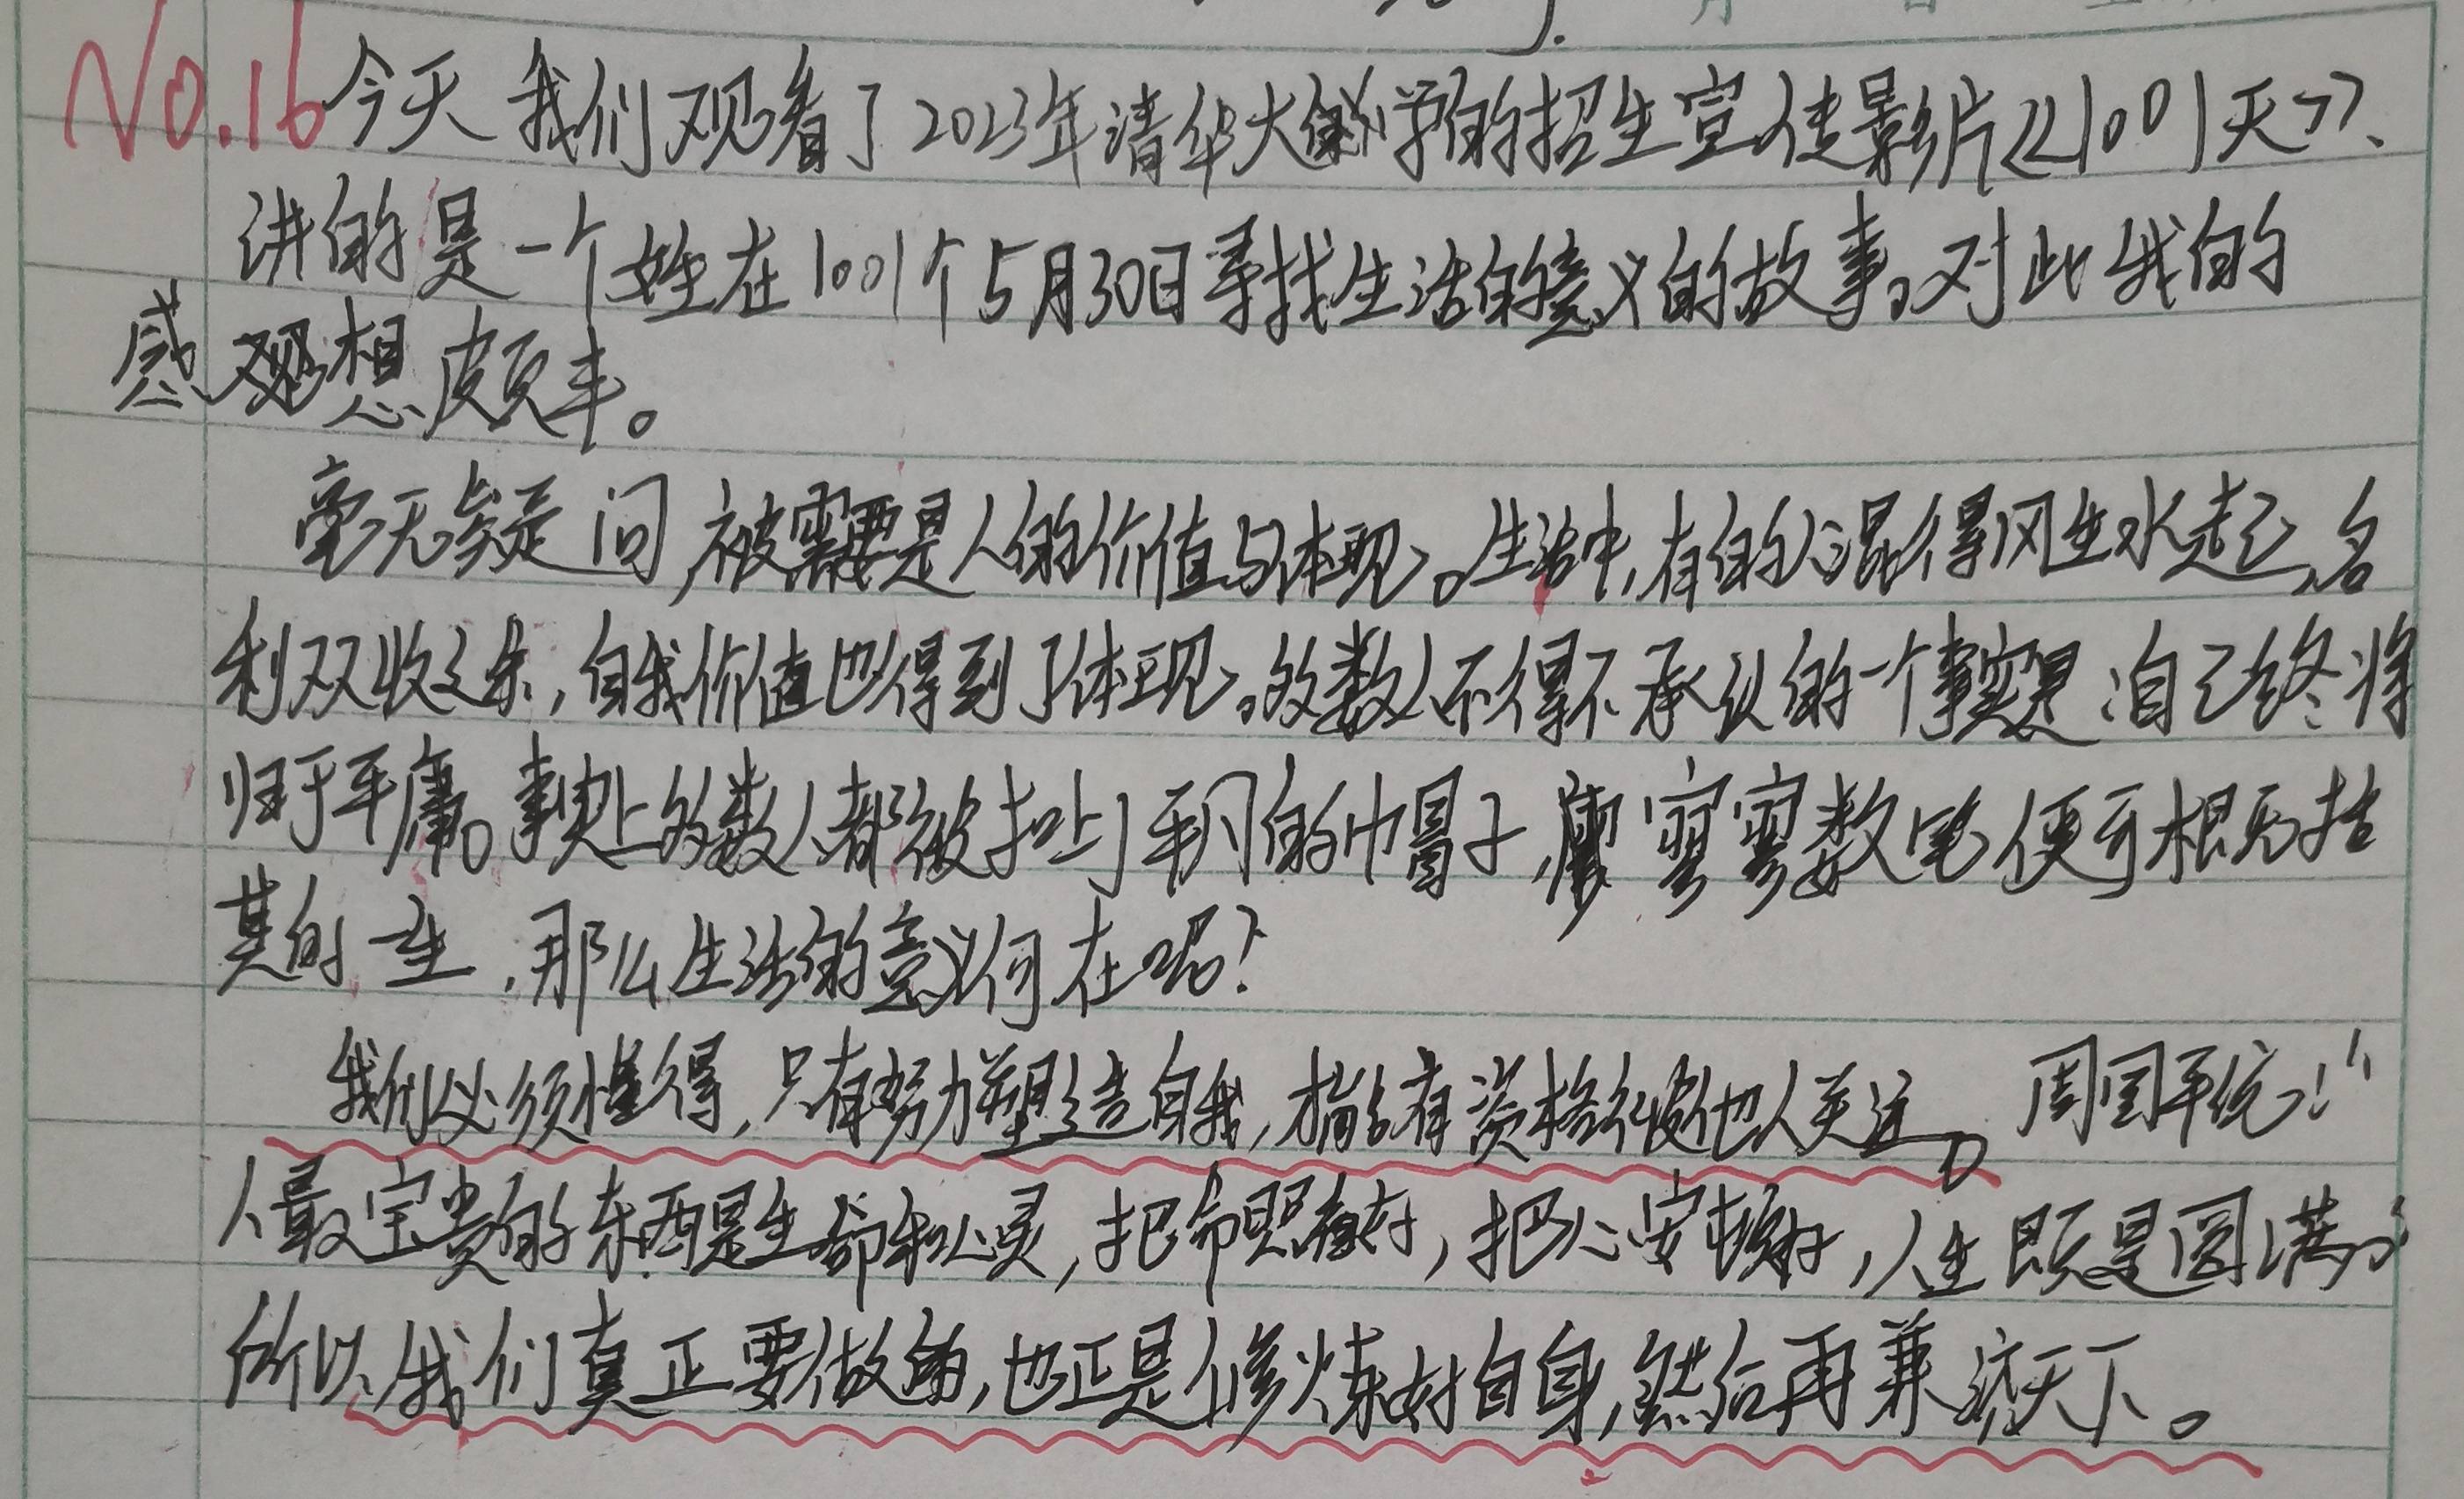 No.16 今天 我们观看了2023年清华大学的招生宣传影片《1001天》、
讲的是一个女生在1001个5月30日寻找生活的意义的故事。对此我的
感想颇丰。
毫无疑问,被需要是人的价值与体现。生活中,有的人混得风生水起,名
利双收之余,自我价值也得到了体现。多数人不得不承认的一个事实是:自己终将
归于平庸。事实上多数人都被扣上了平凡的帽子,寥寥数笔便可概括
其的一生,那么生活的意义何在呢?
我们必须懂得,只有努力塑造自我,才能有资格被他人关注。周国平说:“
人最宝贵的东西是生命和心灵,把命照看好,把心安顿好,人生既是圆满。”
所以,我们真正要做的,也正是修炼好自身,然后再兼济天下。